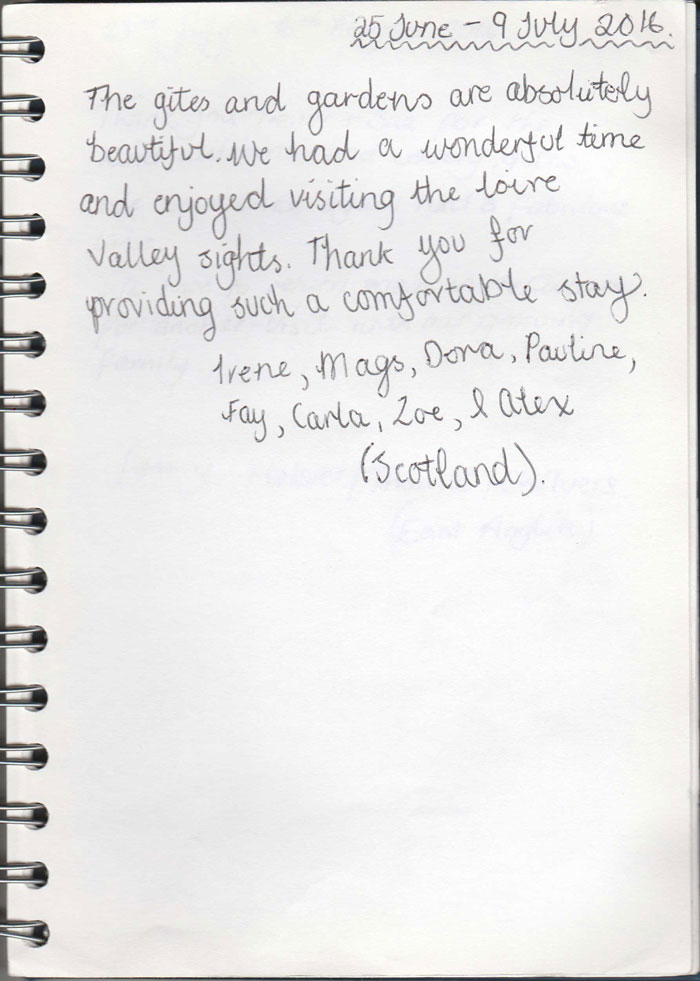 25 June - 9 July 2016.
The gites and gardens are absolutely
beautiful. We had a wonderful time
and enjoyed visiting the loire
Valley sights. Thank you for
providing such a comfortable stay.
Irene, Mags, Dora, Pauline,
Fay, Carla, Zoe, & Alex
(Scotland).